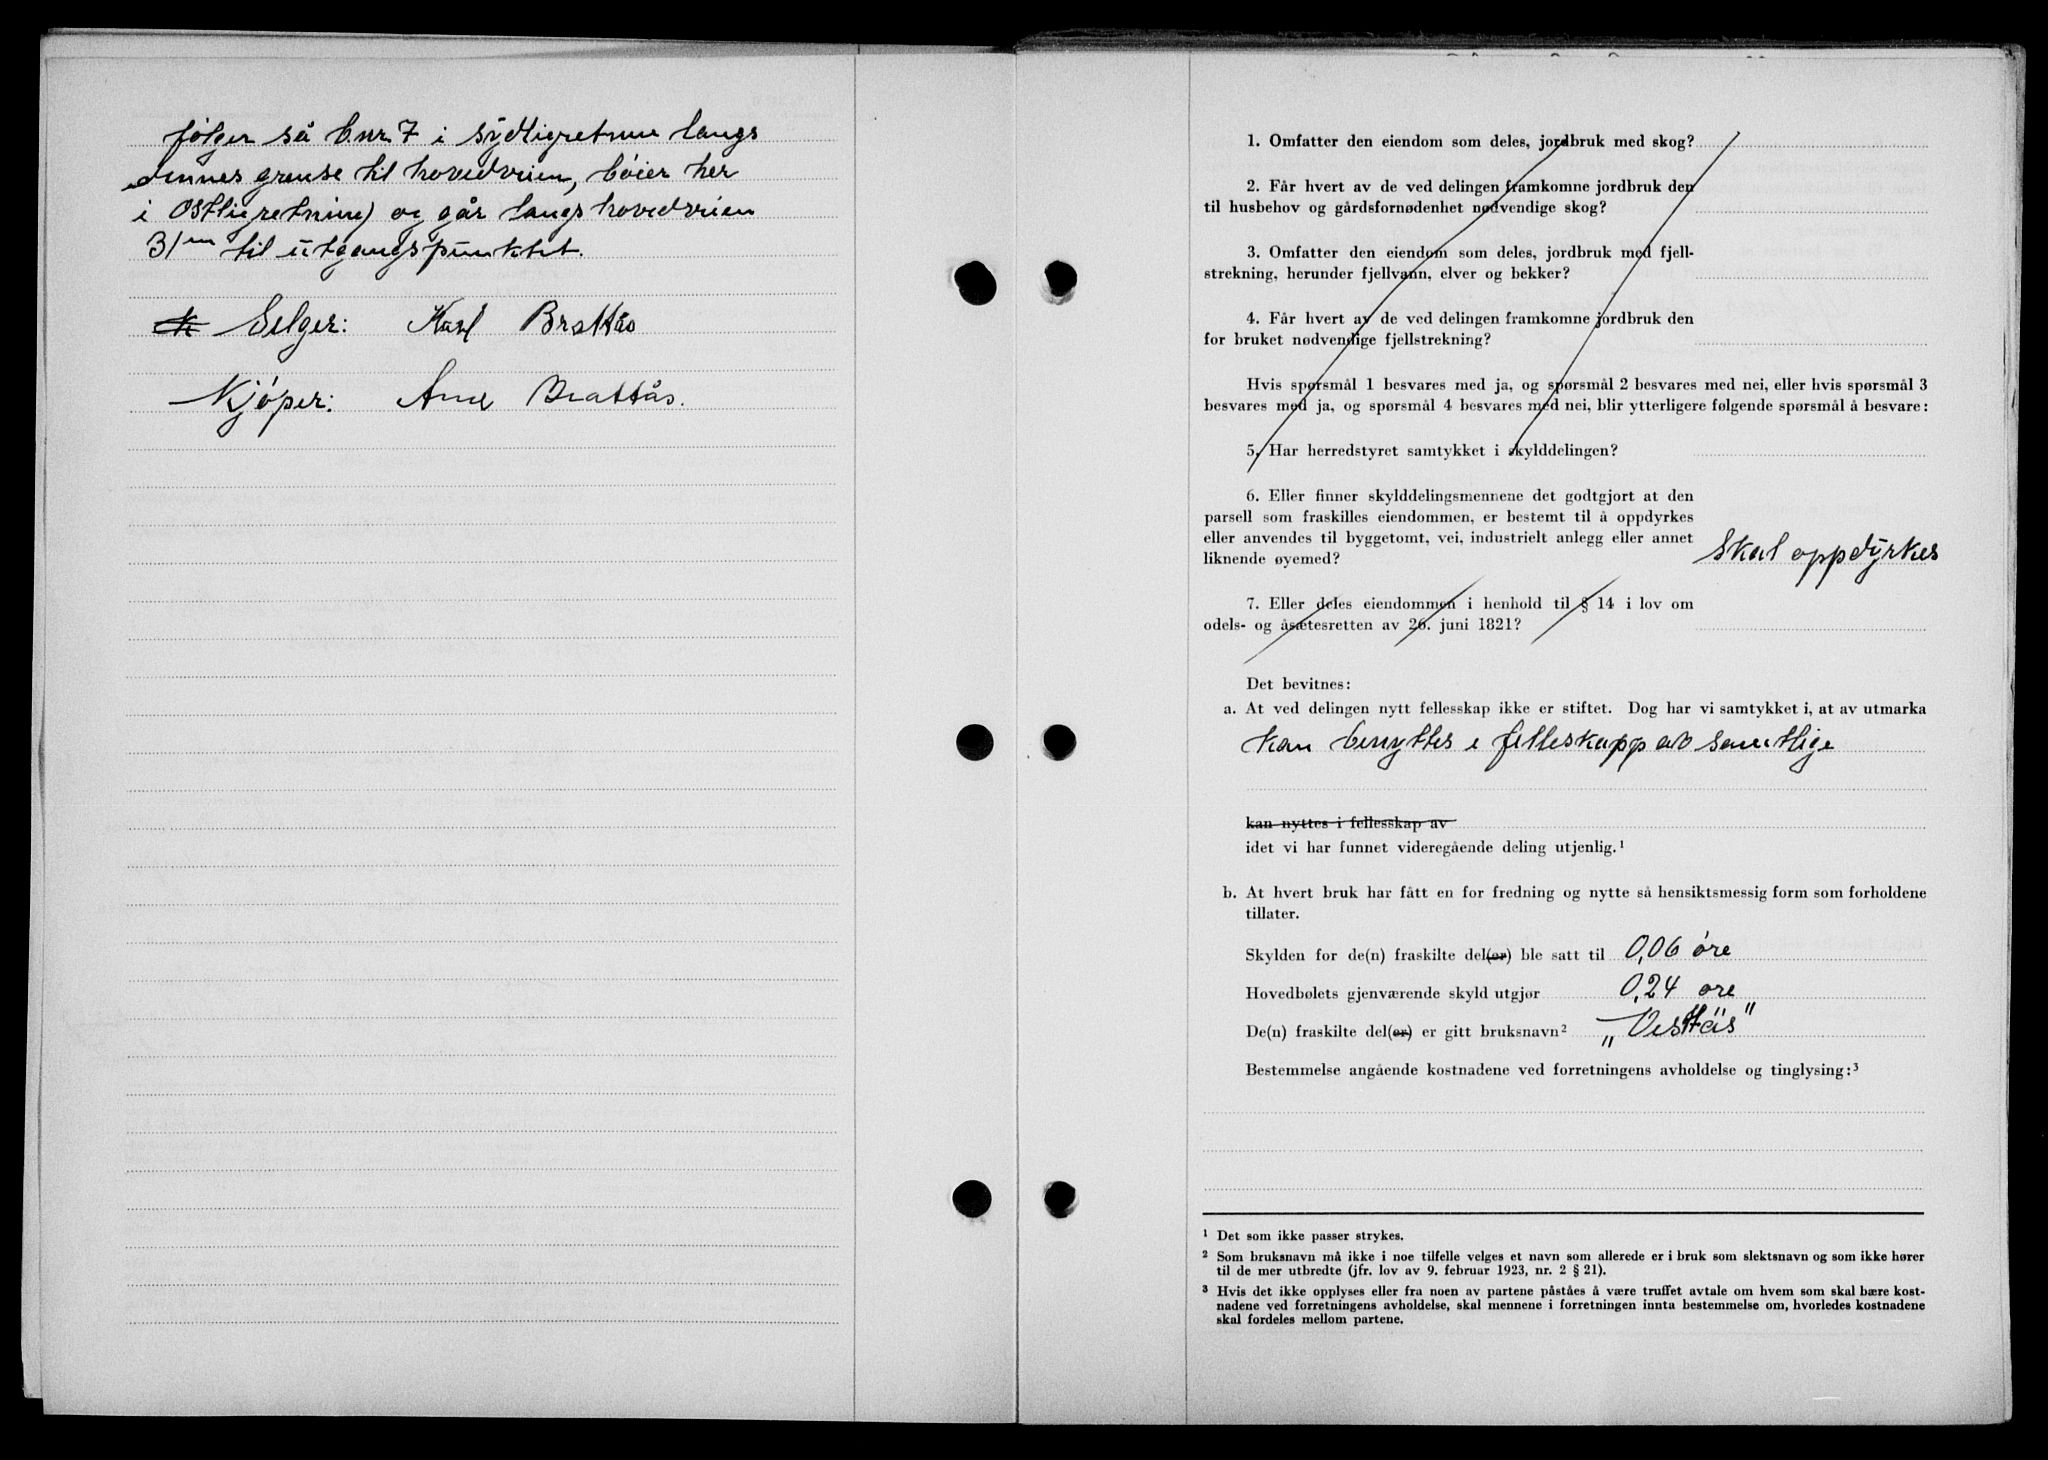 følger så bnr 7 i sydligretning langs
dennes grense til hovedveien, bøier her
i østligretning) og går langs hovedveien
31 m til utgangspunktet.
Selger: Karl Brattås
Kjøper: Arne Brattås.
1. Omfatter den eiendom som deles, jordbruk med skog?
2. Får hvert av de ved delingen framkomne jordbruk den
til husbehov og gårdsfornødenhet nødvendige skog?
3. Omfatter den eiendom som deles, jordbruk med fjell-
strekning, herunder fjellvann, elver og bekker?
4. Får hvert av de ved delingen framkomne jordbruk den
for bruket nødvendige fjellstrekning?
Hvis spørsmål 1 besvares med ja, og spørsmål 2 besvares med nei, eller hvis spørsmål 3
besvares med ja, og spørsmål 4 besvares med nei, blir ytterligere følgende spørsmål å besvare:
5. Har herredstyret samtykket i skylddelingen?
6. Eller finner skylddelingsmennene det godtgjort at den
parsell som fraskilles eiendommen, er bestemt til å oppdyrkes
eller anvendes til byggetomt, vei, industrielt anlegg eller annet
liknende øyemed? Skal oppdyrkes
7. Eller deles eiendommen i henhold til § 14 i lov om
odels- og åsætesretten av 26. juni 1821?
Det bevitnes:
a. At ved delingen nytt fellesskap ikke er stiftet. Dog har vi samtykket i, at av utmarka
kan benyttes i felleskapp av samtlige
kan nyttes i fellesskap av
idet vi har funnet videregående deling utjenlig.¹
b. At hvert bruk har fått en for fredning og nytte så hensiktsmessig form som forholdene
tillater.
Skylden for de(n) fraskilte del(er) ble satt til 0,06 øre
Hovedbølets gjenværende skyld utgjør 0,24 øre
De(n) fraskilte del(er) er gitt bruksnavn² „Veståis"
Bestemmelse angående kostnadene ved forretningens avholdelse og tinglysing:³
¹ Det som ikke passer strykes.
² Som bruksnavn må ikke i noe tilfelle velges et navn som allerede er i bruk som slektsnavn og som ikke hører
til de mer utbredte (jfr. lov av 9. februar 1923, nr. 2 § 21).
³ Hvis det ikke opplyses eller fra noen av partene påståes å være truffet avtale om hvem som skal bære kost-
nadene ved forretningens avholdelse, skal mennene i forretningen innta bestemmelse om, hvorledes kostnadene
skal fordeles mellom partene.